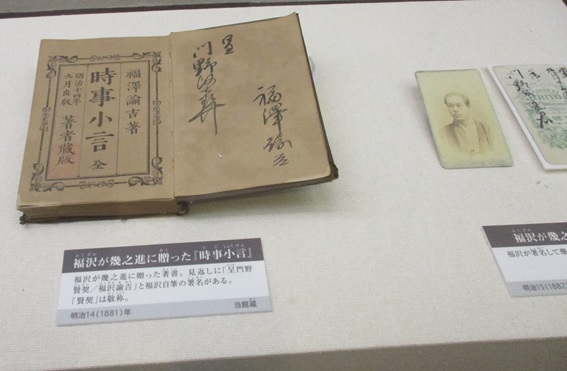 福澤諭吉著
時事小言 全
明治十四年
九月出版
著者藏版
呈
門野賢契
福澤諭吉
福沢が幾之進に贈った『時事小言』
福沢が幾之進に贈った著書。見返しに「呈門野
賢契/福沢諭吉」と福沢自筆の署名がある。
「賢契」は敬称。
当館蔵
明治14(1881)年
福沢が幾
福沢が署名して幾
明治15(1882)